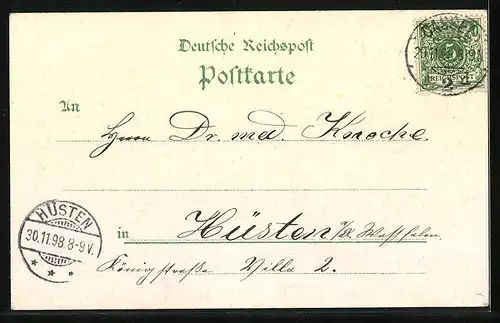 Deutsche Reichspost
Postkarte
An
Herrn Dr. med. Knoche.
in Hüsten i/a. Westfalen.
Königstraße Villa 2.
HÜSTEN
30.11.98.8-9V.
5